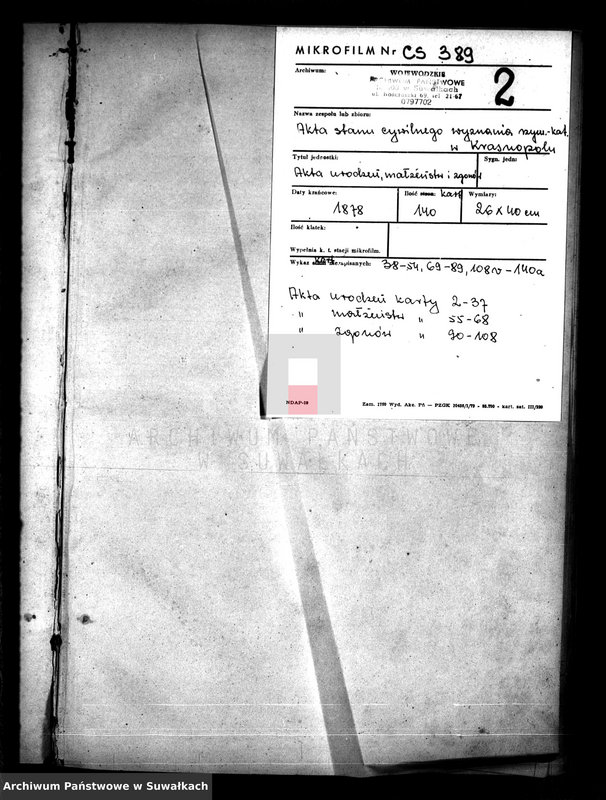 MIKROFILM Nr CS 389
Archiwum:
WOJEWÓDZKIE
ARCHIWUM PAŃSTWOWE
w Suwałkach
ul. Kościuszki 69, tel. 21-67
0797702
2
Nazwa zespołu lub zbioru:
Akta stanu cywilnego wyznania rzym.-kat.
w Krasnopolu
Tytuł jednostki:
Sygn. jedn:
Akta urodzeń, małżeństw i zgonów
Daty krańcowe:
Ilość kart
Wymiary:
1878
140
26 x 40 cm
Ilość klatek:
Wypełnia k. t. stacji mikrofilm.
Wykaz kart niezapisanych: 38-54, 69-89, 108v-140a
Akta urodzeń karty 2-37
" małżeństw " 55-68
" zgonów " 90-108
NDAP-10
ARCHIWUM PAŃSTWOWE
W SUWAŁKACH
Archiwum Państwowe w Suwałkach